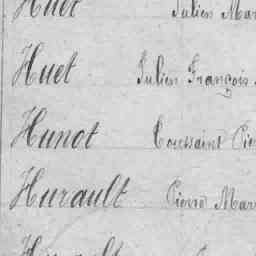 Huet Julien Mar
Huet Julien François
Hunot Toussaint Pie
Hurault Pierre Mar